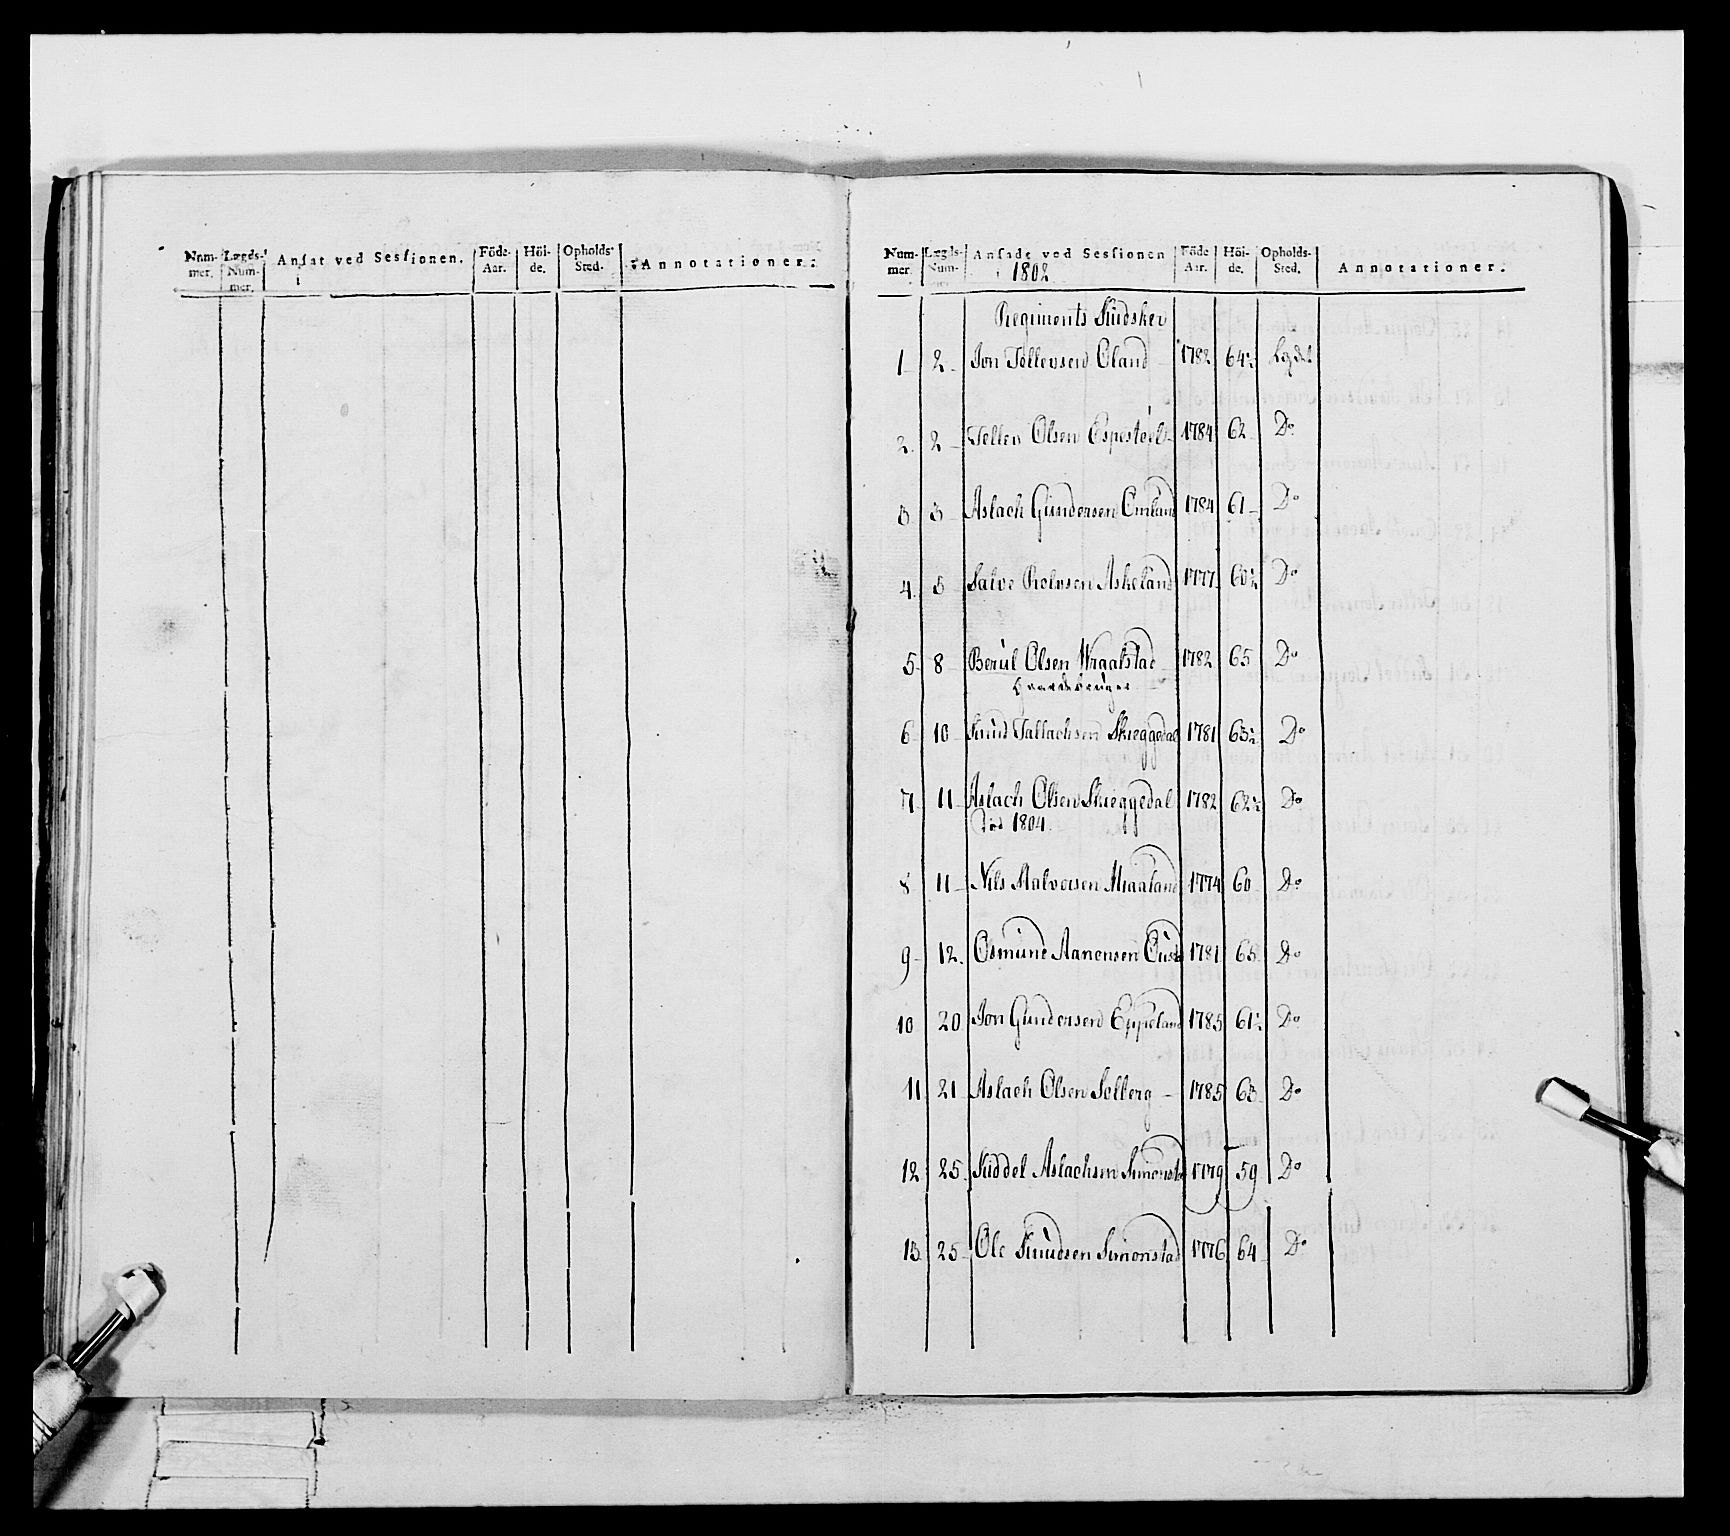 Num- mer. Lægds- Num- mer. Ansat ved Sessionen. Föde- Aar. Höi- de. Opholds- Sted. Annotationer.
i
Num- mer. Lægds- Num- Ansadte ved Sessionen Föde Aar. Höi- de. Opholds- Sted. Annotationer.
i 1802
Regiments Kudsker
1 2 Jon Tellevsen Oland 1782 64½ Lægdet
2. 2 Tellev Olsen Espestøel 1784 62 Do
3 3 Aslach Gundersen Omland 1784 61 Do
4. 5 Salve Rolvsen Askeland 1777 60½ Do
5 8 Berul Olsen Wraalstad 1782 65 Do
Gaardebruger
6 10 Knud Tallachsen Skieggedal 1781 63½ Do
7 11 Aslach Olsen Skieggedal 1782 62½ Do
Død 1804.
8 11 Nils Halvorsen Miaaland 1774 60 Do
9 12. Osmund Aanensen 1781 63 Do
10 20 Jon Gundersen Eppeland 1785 61½ Do
11 21 Aslach Olsen Selberg 1785 63 Do
12 25. Kiddel Aslachsen Simonstad 1779 59 Do
13 25 Ole Knudsen Simonstad 1776 64 Do